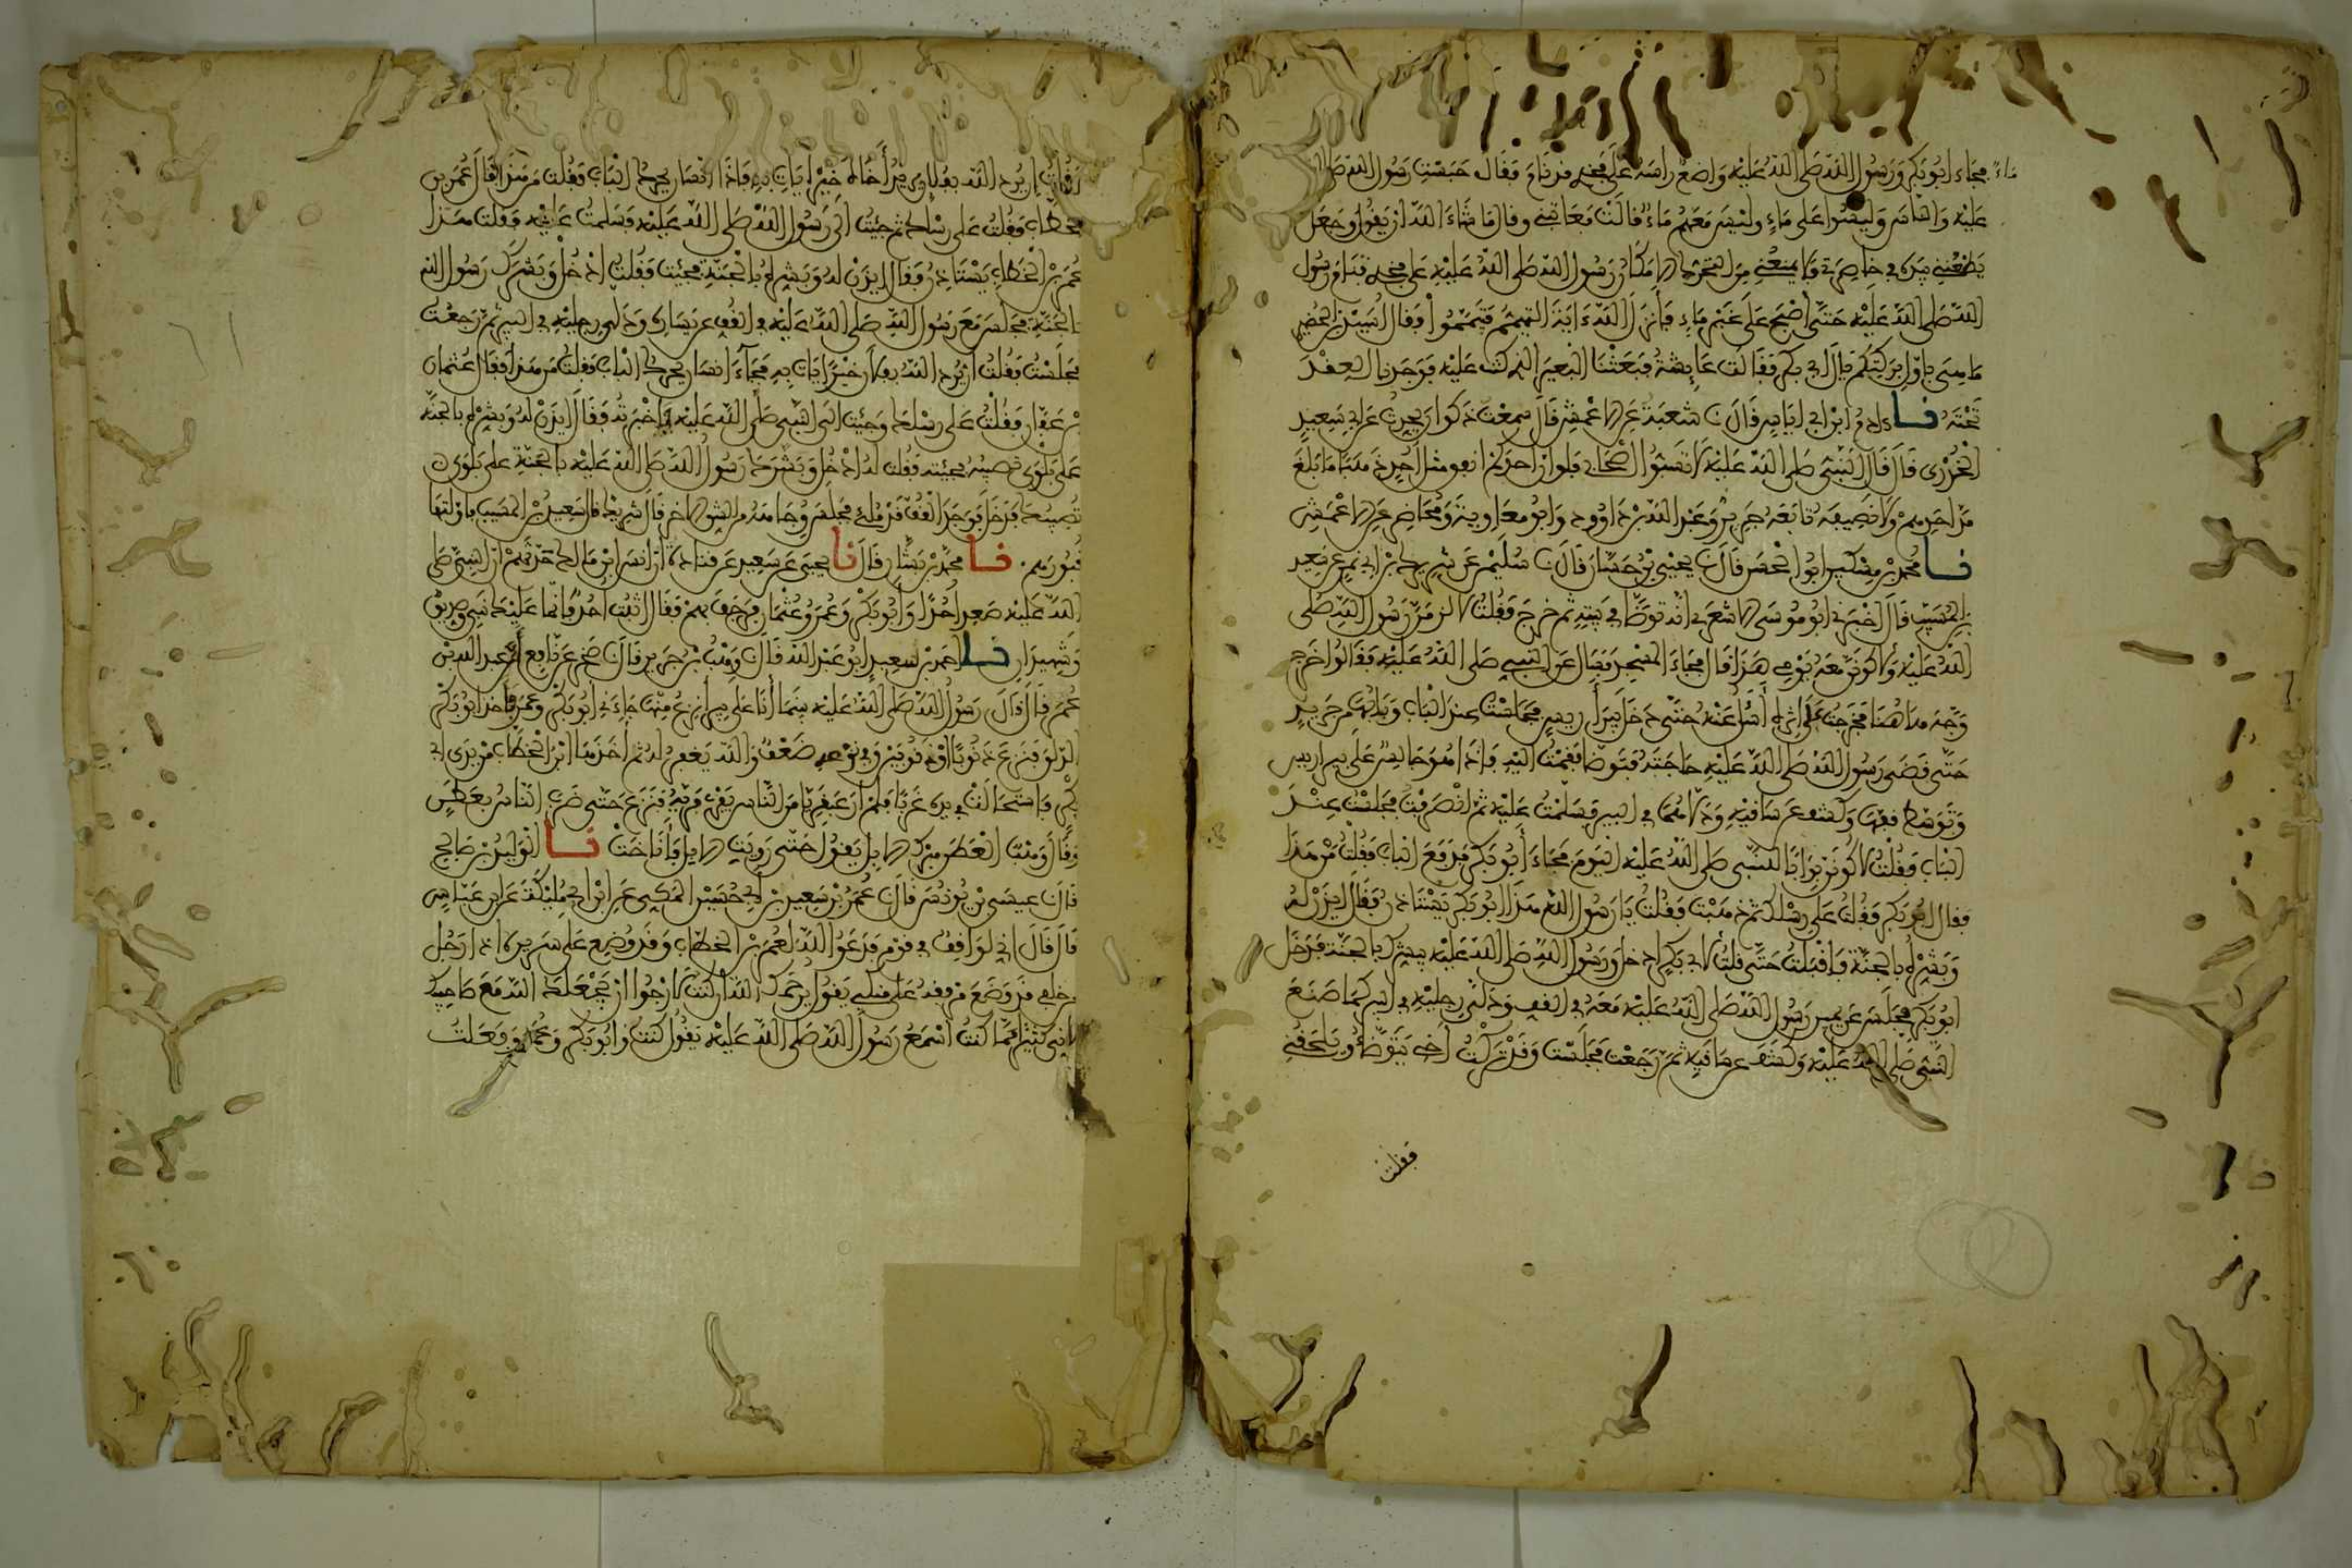 ماء فجاء ابو بكر ورسول الله صلى الله عليه واضع راسه على فخذي قد نام فقال حبست رسول الله صلى الله
عليه والناس وليسوا على ماء وليس معهم ماء قالت فعاتبني وقال ما شاء الله ان يقول وجعل
يطعنني بيده في خاصرتي فلا يمنعني من التحرك الا مكان رسول الله صلى الله عليه على فخذي فنام رسول
الله صلى الله عليه حتى اصبح على غير ماء فأنزل الله ءاية التيمم فتيمموا فقال اسيد بن الحضير
ما هي باول بركتكم يال ابي بكر فقالت عايشة فبعثنا البعير الذي كنت عليه فوجدنا العقد
تحته نا ءادم ابن ابي اياس قال نا شعبة عن الاعمش قال سمعت ذكوان يحدث عن ابي سعيد
الخدري قال قال النبي صلى الله عليه لا تسبوا اصحابي فلو ان احدكم انفق مثل احد ذهبا ما بلغ
مد احدهم ولا نصيفه تابعه جرير وعبد الله بن داوود وابو معاوية ومحاضر عن الاعمش
نا محمد بن مسكين ابو الحسن قال نا يحيى بن حسان قال نا سليمن عن شريك بن ابي نمر عن سعيد
بن المسيب قال اخبرني ابو موسى الاشعري انه توضأ في بيته ثم خرج فقلت لالزمن رسول الله صلى
الله عليه ولاكونن معه يومي هذا قال فجاء المسجد فسال عن النبي صلى الله عليه فقالوا خرج
وجه هاهنا فخرجت على اثره أسأل عنه حتى دخل بير أريس فجلست عند الباب وبابها من جريد
حتى قضى رسول الله صلى الله عليه حاجته فتوضأ فقمت اليه فاذا هو جالس على بير اريس
وتوسط قفها وكشف عن ساقيه ودلاهما في البير فسلمت عليه ثم انصرفت فجلست عند
الباب فقلت لاكونن بوابا للنبي صلى الله عليه اليوم فجاء أبو بكر فدفع الباب فقلت من هذا
فقال ابو بكر فقلت على رسلك ثم ذهبت فقلت يا رسول الله هذا ابو بكر يستاذن فقال ايذن له
وبشره بالجنة فاقبلت حتى قلت لابي بكر ادخل ورسول الله صلى الله عليه يبشرك بالجنة فدخل
ابو بكر فجلس عن يمين رسول الله صلى الله عليه معه في القف ودلى رجليه في البير كما صنع
النبي صلى الله عليه وكشف عن ساقيه ثم رجعت فجلست وقد تركت أخي يتوضأ ويلحقني
فقلت
إن يرد الله بفلان يريد أخاه خيرا يات به فاذا انسان يحرك الباب فقلت من هذا فقال عمر بن
الخطاب فقلت على رسلك ثم جئت الى رسول الله صلى الله عليه فسلمت عليه فقلت هذا
عمر بن الخطاب يستاذن فقال ايذن له وبشره بالجنة فجئت فقلت ادخل وبشرك رسول الله
بالجنة فجلس مع رسول الله صلى الله عليه في القف عن يساره ودلى رجليه في البير ثم رجعت
فجلست فقلت ان يرد الله بفلان خيرا يات به فجاء انسان يحرك الباب فقلت من هذا فقال عثمان
بن عفان فقلت على رسلك وجئت الى النبي صلى الله عليه فاخبرته فقال ايذن له وبشره بالجنة
على بلوى تصيبه فجئته فقلت له ادخل وبشرك رسول الله صلى الله عليه بالجنة على بلوى
تصيبك فدخل فوجد القف قد ملئ فجلس وجاهه من الشق الاخر قال شريك قال سعيد بن المسيب فاولتها
قبورهم. نا محمد بن بشار قال نا يحيى عن سعيد عن قتادة ان انس ابن مالك حدثهم ان النبي صلى
الله عليه صعد احدا وابو بكر وعمر وعثمان فرجف بهم فقال اثبت احد فانما عليك نبي وصديق
وشهيدان نا احمد بن سعيد ابو عبد الله قال نا وهب بن جرير قال نا صخر عن نافع أن عبد الله بن
عمر قال قال رسول الله صلى الله عليه بينما أنا على بير أنزع منها جاءني ابو بكر وعمر فاخذ ابو بكر
الدلو فنزع ذنوبا او ذنوبين وفي نزعه ضعف والله يغفر له ثم أخذها ابن الخطاب من يد ابي
بكر فاستحالت في يده غربا فلم ار عبقريا من الناس يفري فريه فنزع حتى ضرب الناس بعطن
وقال وهب العطن مبرك الابل يقول حتى رويت الابل فأناخت نا الوليد بن صالح
قال نا عيسى بن يونس قال نا عمر بن سعيد بن أبي حسين المكي عن ابن ابي مليكة عن ابن عباس
قال قال اني لواقف في قوم فدعوا الله لعمر بن الخطاب وقد وضع على سريره اذا رجل
من خلفي قد وضع مرفقه على منكبي يقول يرحمك الله ان كنت لارجوا ان يجعلك الله مع صاحبيك
لاني كثيرا مما كنت اسمع رسول الله صلى الله عليه يقول كنت وابو بكر وعمر وفعلت